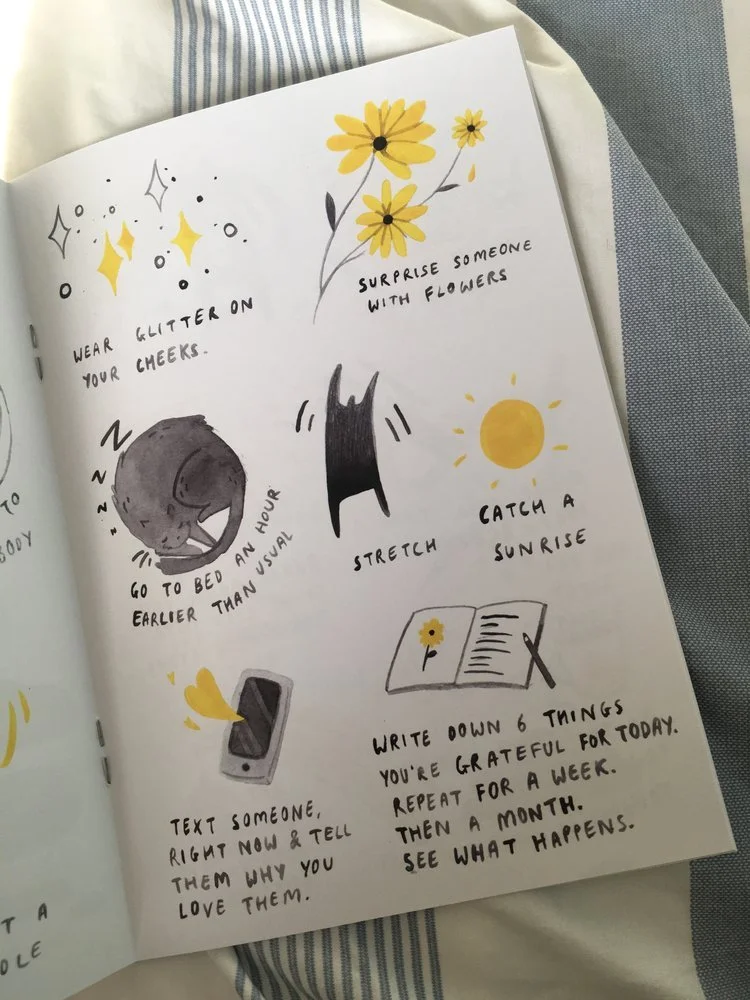 WEAR GLITTER ON
YOUR CHEEKS.
SURPRISE SOMEONE
WITH FLOWERS
Z
Z
Z
Z
GO TO BED AN HOUR
EARLIER THAN USUAL
STRETCH
CATCH A
SUNRISE
TEXT SOMEONE,
RIGHT NOW & TELL
THEM WHY YOU
LOVE THEM.
WRITE DOWN 6 THINGS
YOU'RE GRATEFUL FOR TODAY.
REPEAT FOR A WEEK.
THEN A MONTH.
SEE WHAT HAPPENS.
TO
BODY
T A
OLE